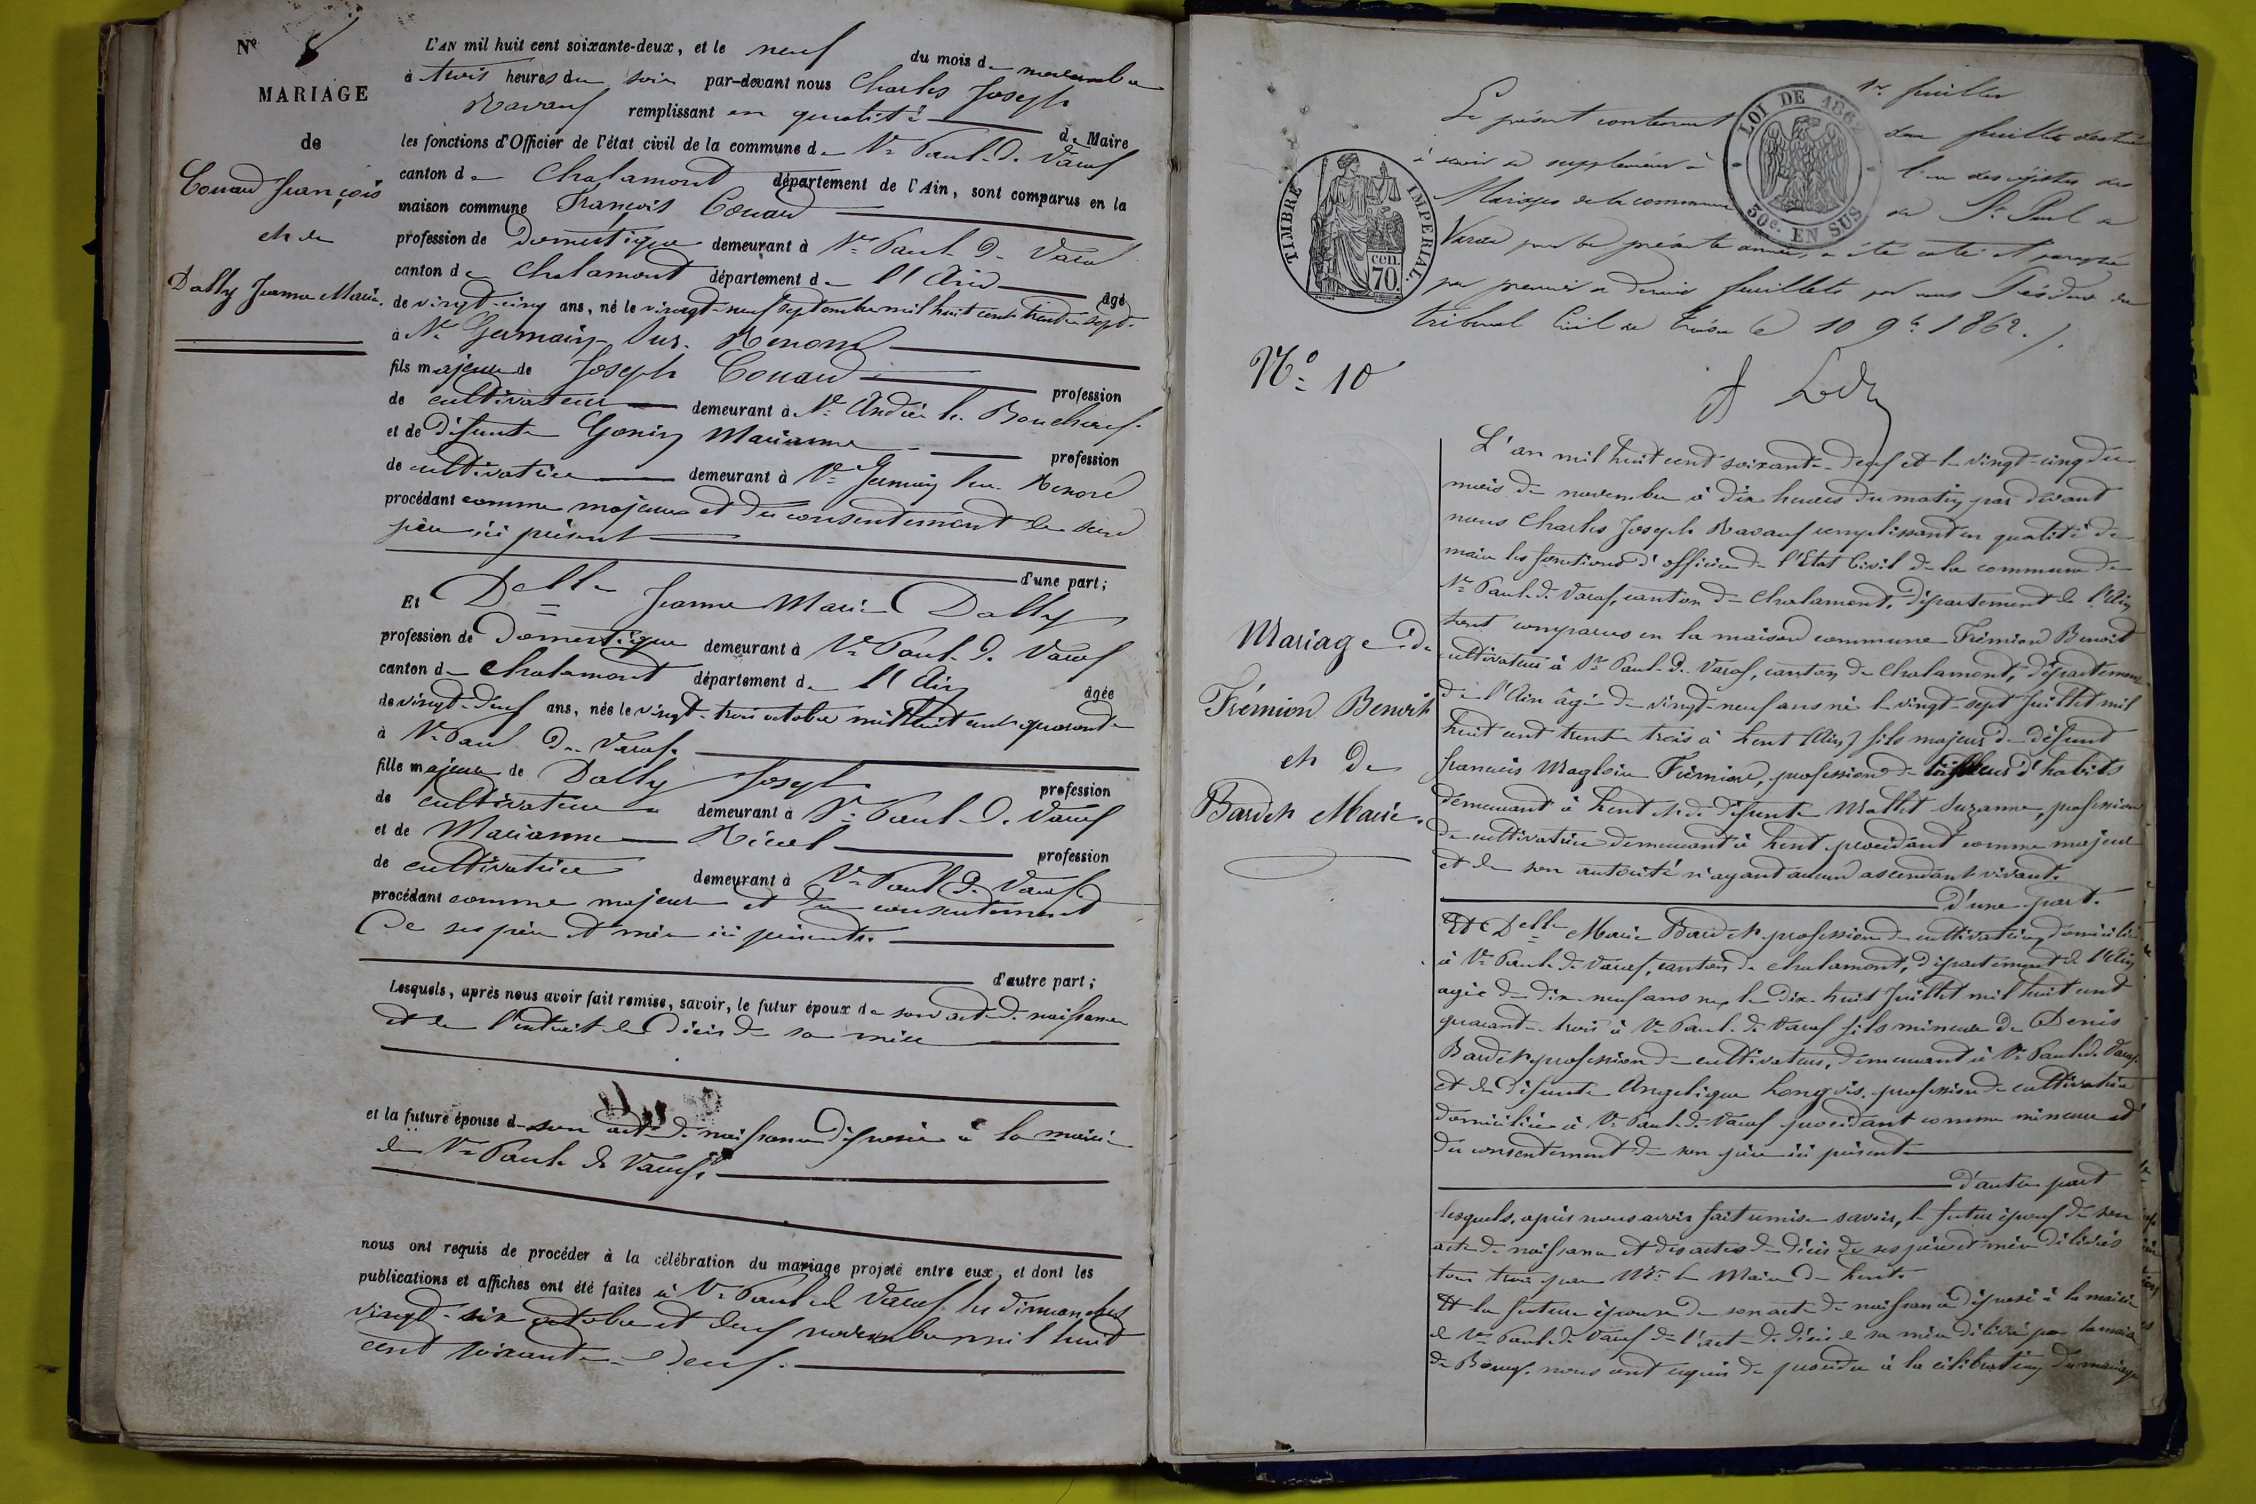 N°
MARIAGE
de
Couard François
et de
Dally Jeanne Marie.
L'AN mil huit cent soixante-deux, et le neuf du mois de novembre
à trois heures du soir par-devant nous Charles Joseph
Ravaux remplissant en qualité de Maire
les fonctions d'Officier de l'état civil de la commune de St Paul de Varax
canton de Chalamont département de l'Ain, sont comparus en la
maison commune François Couard
profession de Domestique demeurant à St Paul de Varax
canton de Chalamont département de l'Ain âgé
de vingt-cinq ans, né le vingt-neuf septembre mil huit cent trente sept
à St Germain sur Renom
fils majeur de Joseph Couard profession
de cultivateur demeurant à St André le Bouchoux
et de défunte Gonin Marianne profession
de cultivatrice demeurant à St Germain sur Renom
procédant comme majeur et du consentement de son
père ici présent
d'une part;
Et Delle Jeanne Marie Dally
profession de Domestique demeurant à St Paul de Varax
canton de Chalamont département de l'Ain âgée
de vingt-deux ans, née le vingt-trois octobre mil huit cent quarante
à St Paul de Varax.
fille majeure de Dally Joseph profession
de cultivateur demeurant à St Paul de Varax
et de Marianne profession
de cultivatrice demeurant à St Paul de Varax
procédant comme majeure et du consentement
de ses père et mère ici présents.
d'autre part;
Lesquels, après nous avoir fait remise, savoir, le futur époux de son acte de naissance
et de l'extrait de décès de sa mère
et la future épouse de son acte de naissance déposé à la mairie
de St Paul de Varax.
nous ont requis de procéder à la célébration du mariage projeté entre eux, et dont les
publications et affiches ont été faites à St Paul de Varax les dimanches
vingt-six octobre et deux novembre mil huit
cent soixante-deux.
1er feuillet
LOI DE 1862
50c. EN SUS
TIMBRE IMPÉRIAL.
70 cen.
Le présent contenant deux feuillets destiné
à servir de supplément à l'un des registres des
Mariages de la commune de St Paul de
Varax pour la présente année, a été coté et paraphé
par premier et dernier feuillets par nous Président du
tribunal Civil de Trévoux le 10 9bre 1862.
N° 10
Mariage de
Frémion Benoit
et de
Bardet Marie.
L'an mil huit cent soixante-deux et le vingt-cinq du
mois de novembre à dix heures du matin par devant
nous Charles Joseph Ravaux remplissant en qualité de
maire les fonctions d'officier de l'Etat Civil de la commune de
St Paul de Varax, canton de Chalamont, département de l'Ain
sont comparus en la maison commune Frémion Benoit
cultivateur à St Paul de Varax, canton de Chalamont, département
de l'Ain âgé de vingt-neuf ans né le vingt-sept Juillet mil
huit cent trente trois à Lent (Ain) fils majeur de défunt
François Magloire Frémion, profession de tailleur d'habits
demeurant à Lent et de défunte Mallet Suzanne, profession
de cultivatrice demeurant à Lent procédant comme majeur
et de son autorité n'ayant aucun ascendant vivant.
d'une part.
Et Delle Marie Bardet profession de cultivatrice, domiciliée
à St Paul de Varax, canton de Chalamont, département de l'Ain
agée de dix-neuf ans née le dix-huit Juillet mil huit cent
quarante-trois à St Paul de Varax fille mineure de Denis
Bardet profession de cultivateur, demeurant à St Paul de Varax
et de défunte Angelique profession de cultivatrice
domiciliée à St Paul de Varax procédant comme mineure et
du consentement de son père ici présent
d'autre part
lesquels, après nous avoir fait remise savoir, le futur époux de son
acte de naissance et des actes de décès de ses père et mère délivrés
tous trois par Mr le Maire de Lent.
Et la future épouse de son acte de naissance déposé à la mairie
de St Paul de Varax de l'acte de décès de sa mère délivré par le maire
de Bourg. nous ont requis de procéder à la célébration du mariage